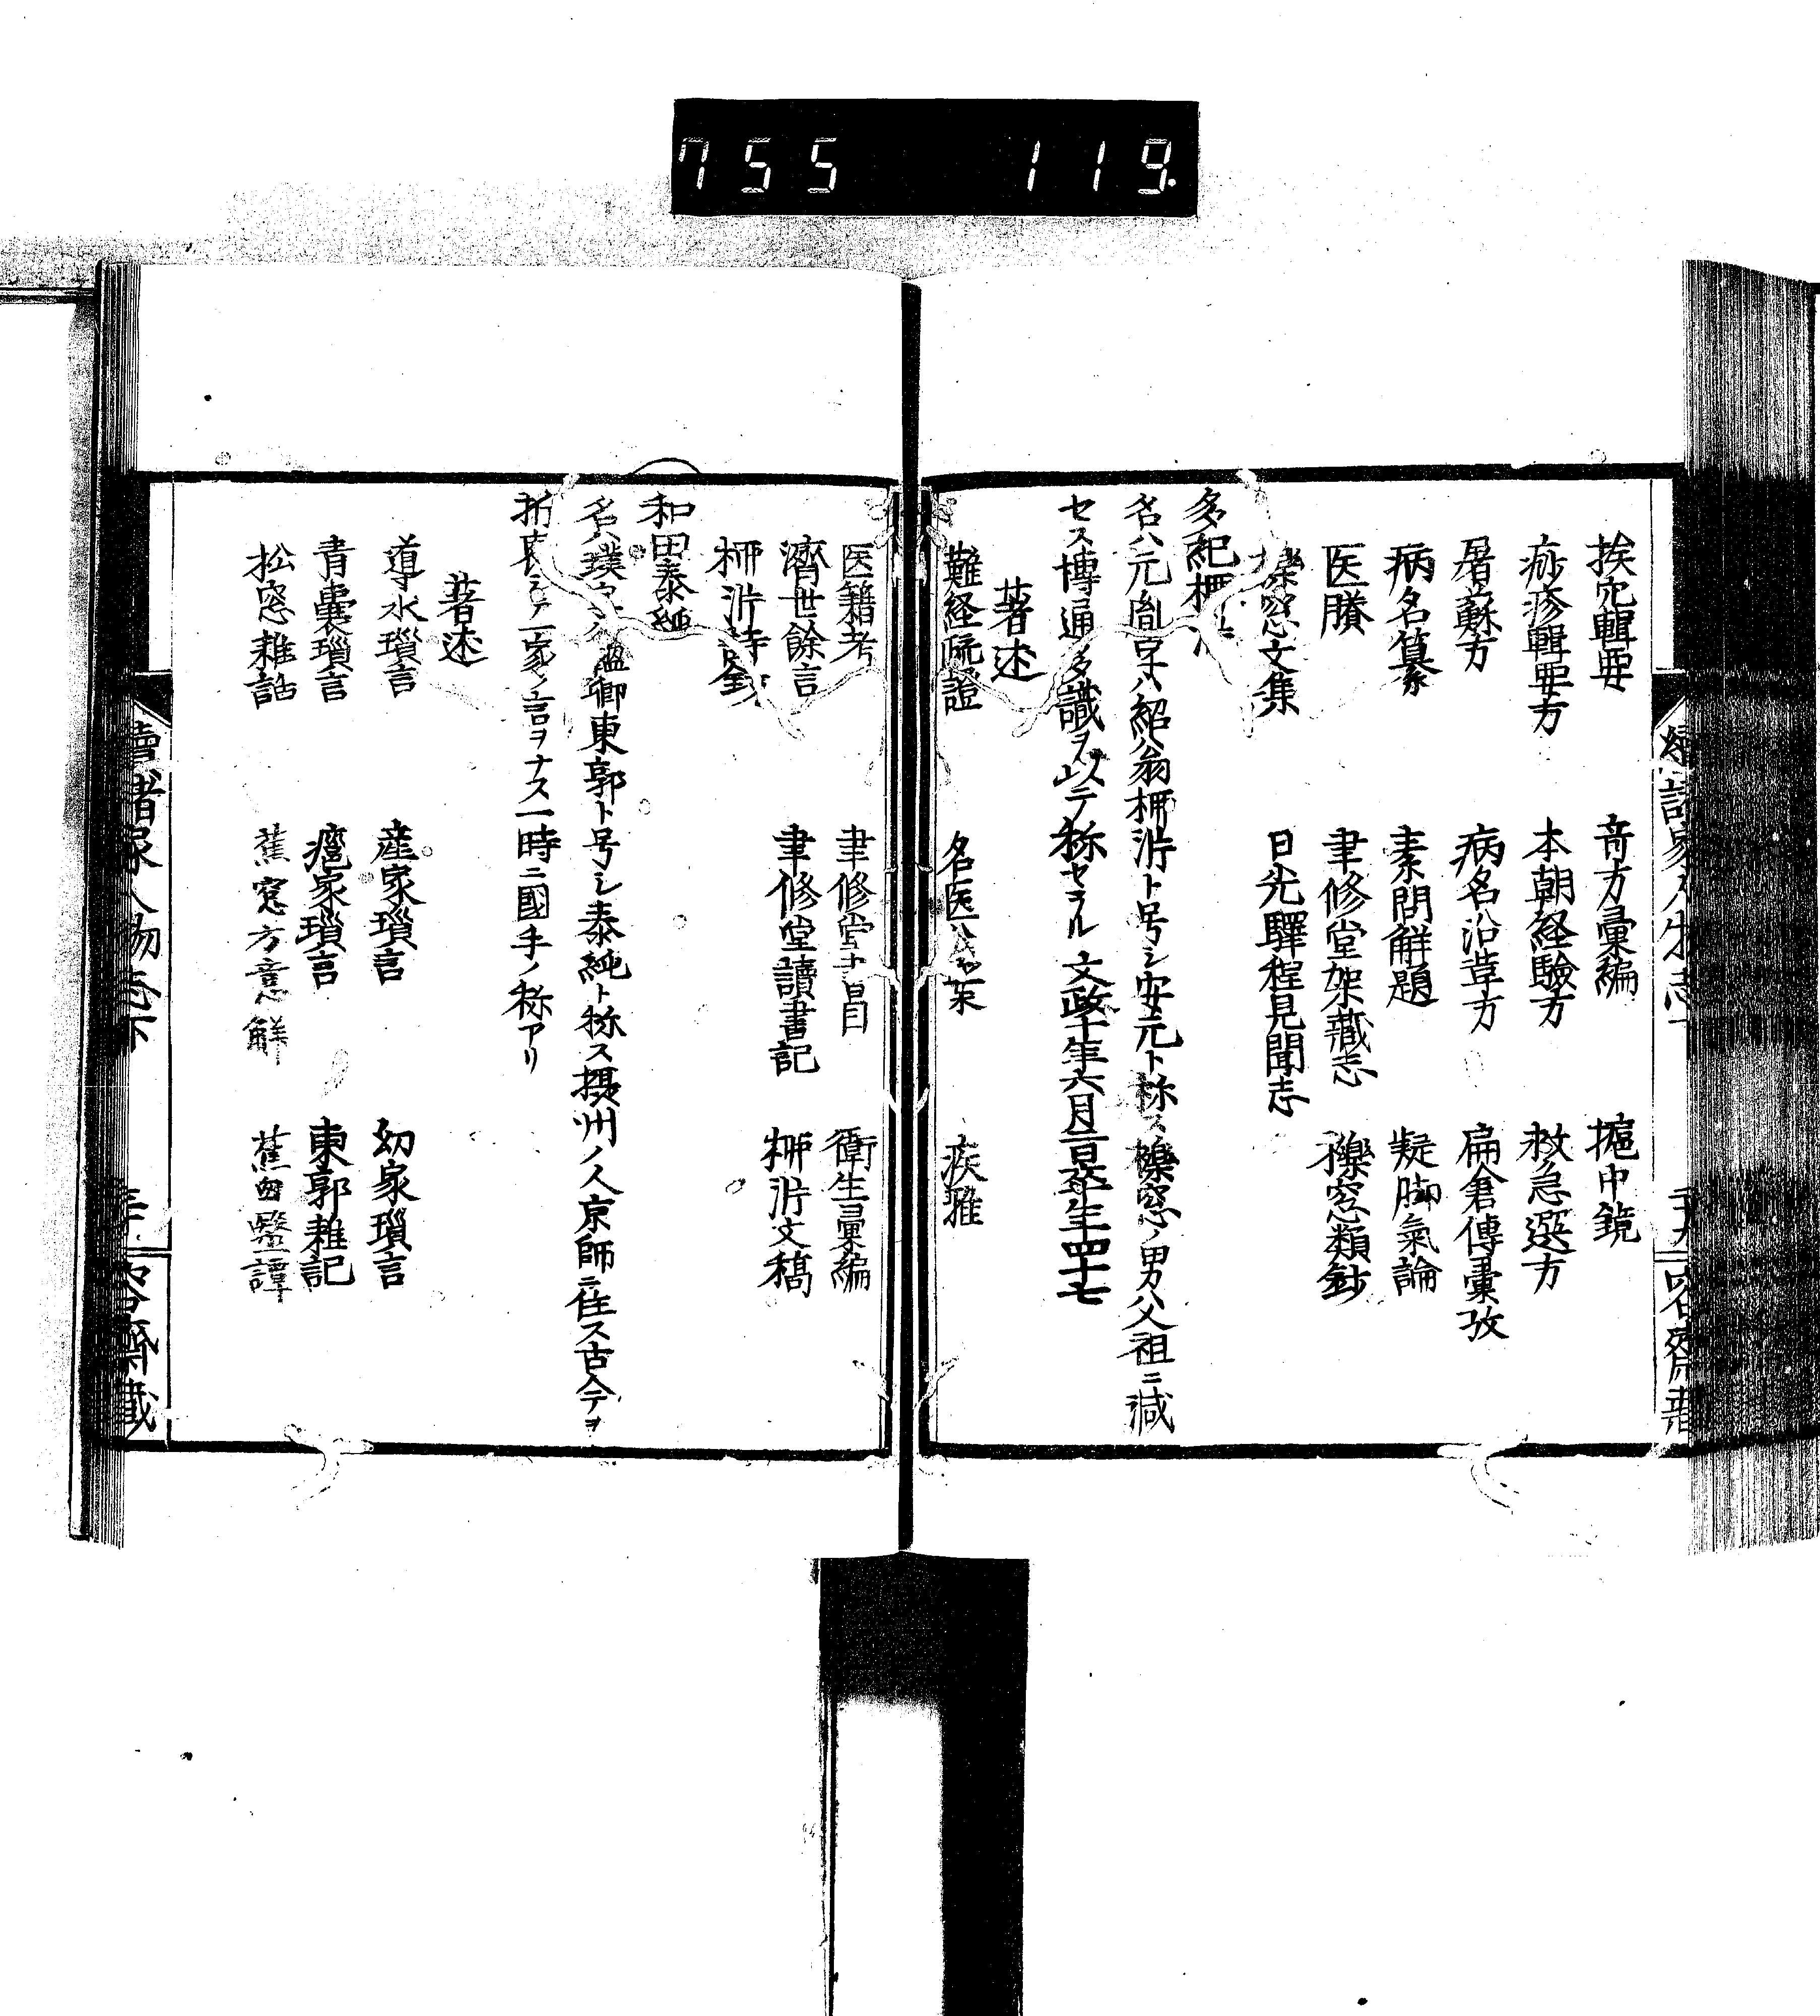 755 119
挨穴輯要 奇方彙編 搥中鏡
痧疹輯要方 本朝経驗方 救急選方
屠蘇方 病名沿革方 扁倉傳彙攷
病名纂 素問解題 疑脚氣論
医賸 聿修堂架藏志 櫟窓類鈔
窓文集 日光驛程見聞志
多紀柳
名ハ元胤字ハ紹翁柳沜ト号シ安元ト称ス櫟窓ノ男父祖ニ減
セス博通多識ヲ以テ称セラル文政十年六月三日卒年四十七
著述
難経疏證 名医 疾雅
医籍考 聿修堂 目 衛生彙編
濟世餘言 聿修堂讀書記 柳沜文稿
柳沜詩鈔
和田泰純
名ハ璞字ハ韞卿東郭ト号シ泰純ト称ス摂州ノ人京師ニ住ス古今ヲ
折衷シテ一家ノ言ヲナス一時ニ國手ノ称アリ
著述
導水瑣言 産家瑣言 幼家瑣言
青嚢瑣言 瘡家瑣言 東郭雜記
松窓雜話 蕉窓方意解 蕉窓醫譚
續諸家人物志下